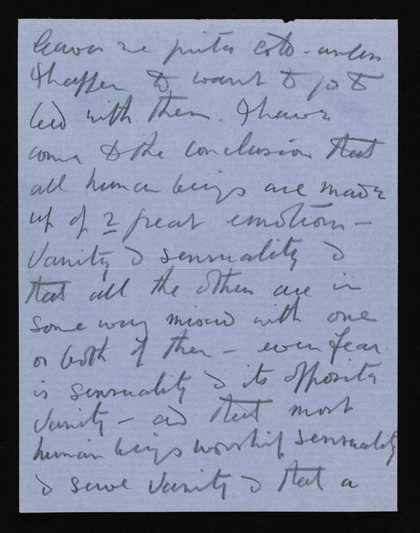 leaves me quite cold - unless
I happen to want to go to
bed with them. I have
come to the conclusion that
all human beings are made
up of 2 great emotions -
Vanity & sensuality &
that all the others are in
some way mixed with one
or both of them - even fear
is sensuality & its opposite
Vanity - and that most
human beings worship sensuality
& serve Vanity & that a